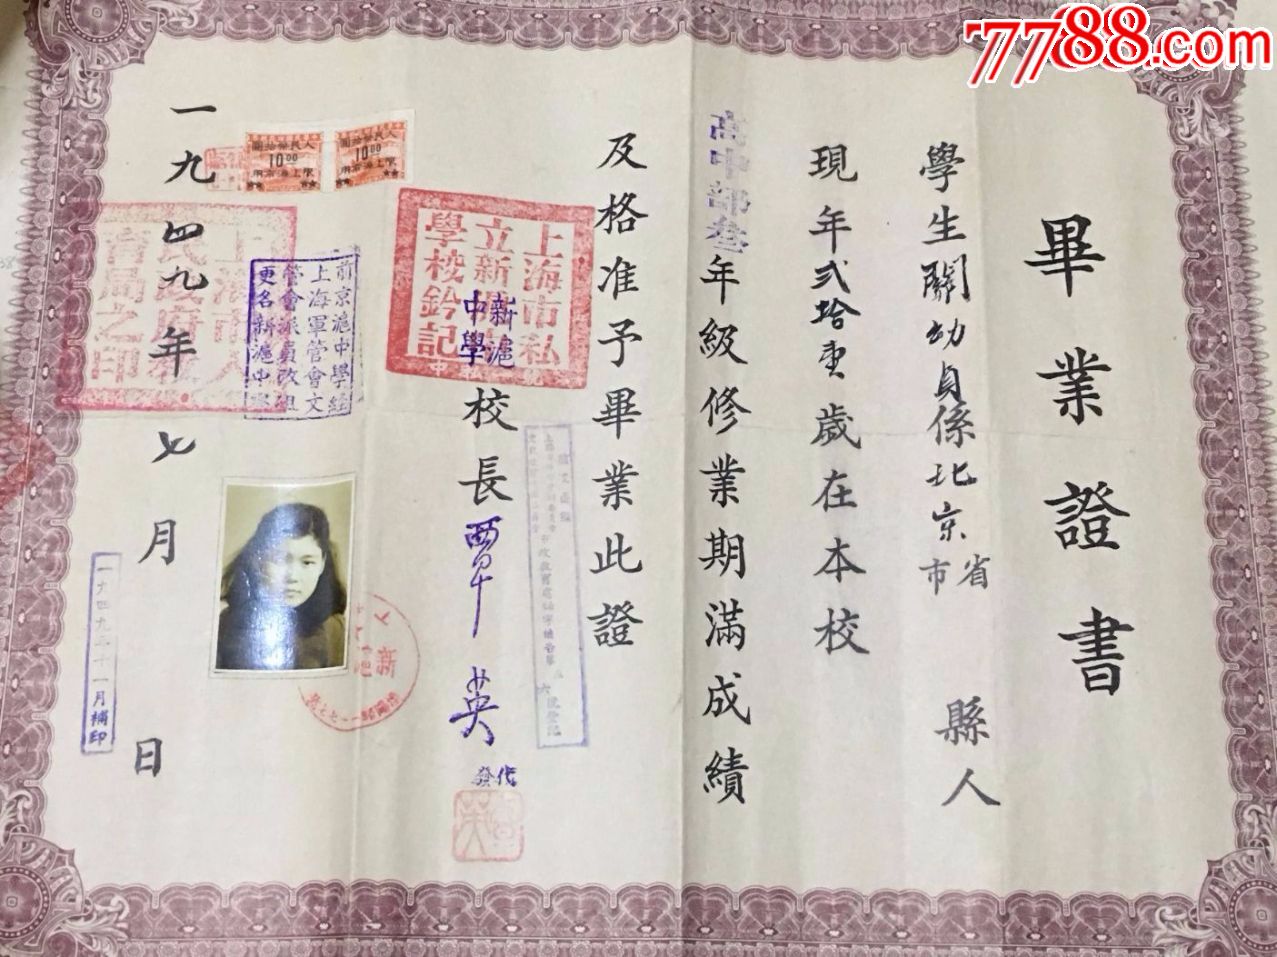 7788.com
畢業證書
學生關幼貞係北京省市縣人
現年貳拾壹歲在本校
高中部叁年級修業期滿成績
及格准予畢業此證
新滬中學
校長覃英
代發
上海市私立新滬中學校鈐記
前京滬中學經
上海軍管會文
管會派員改組
更名新滬中學
人民幣拾圓
10.00
限上海市用
人民幣拾圓
10.00
限上海市用
上海市人民政府教育局之印
一九四九年七月 日
一九四九年十一月補印